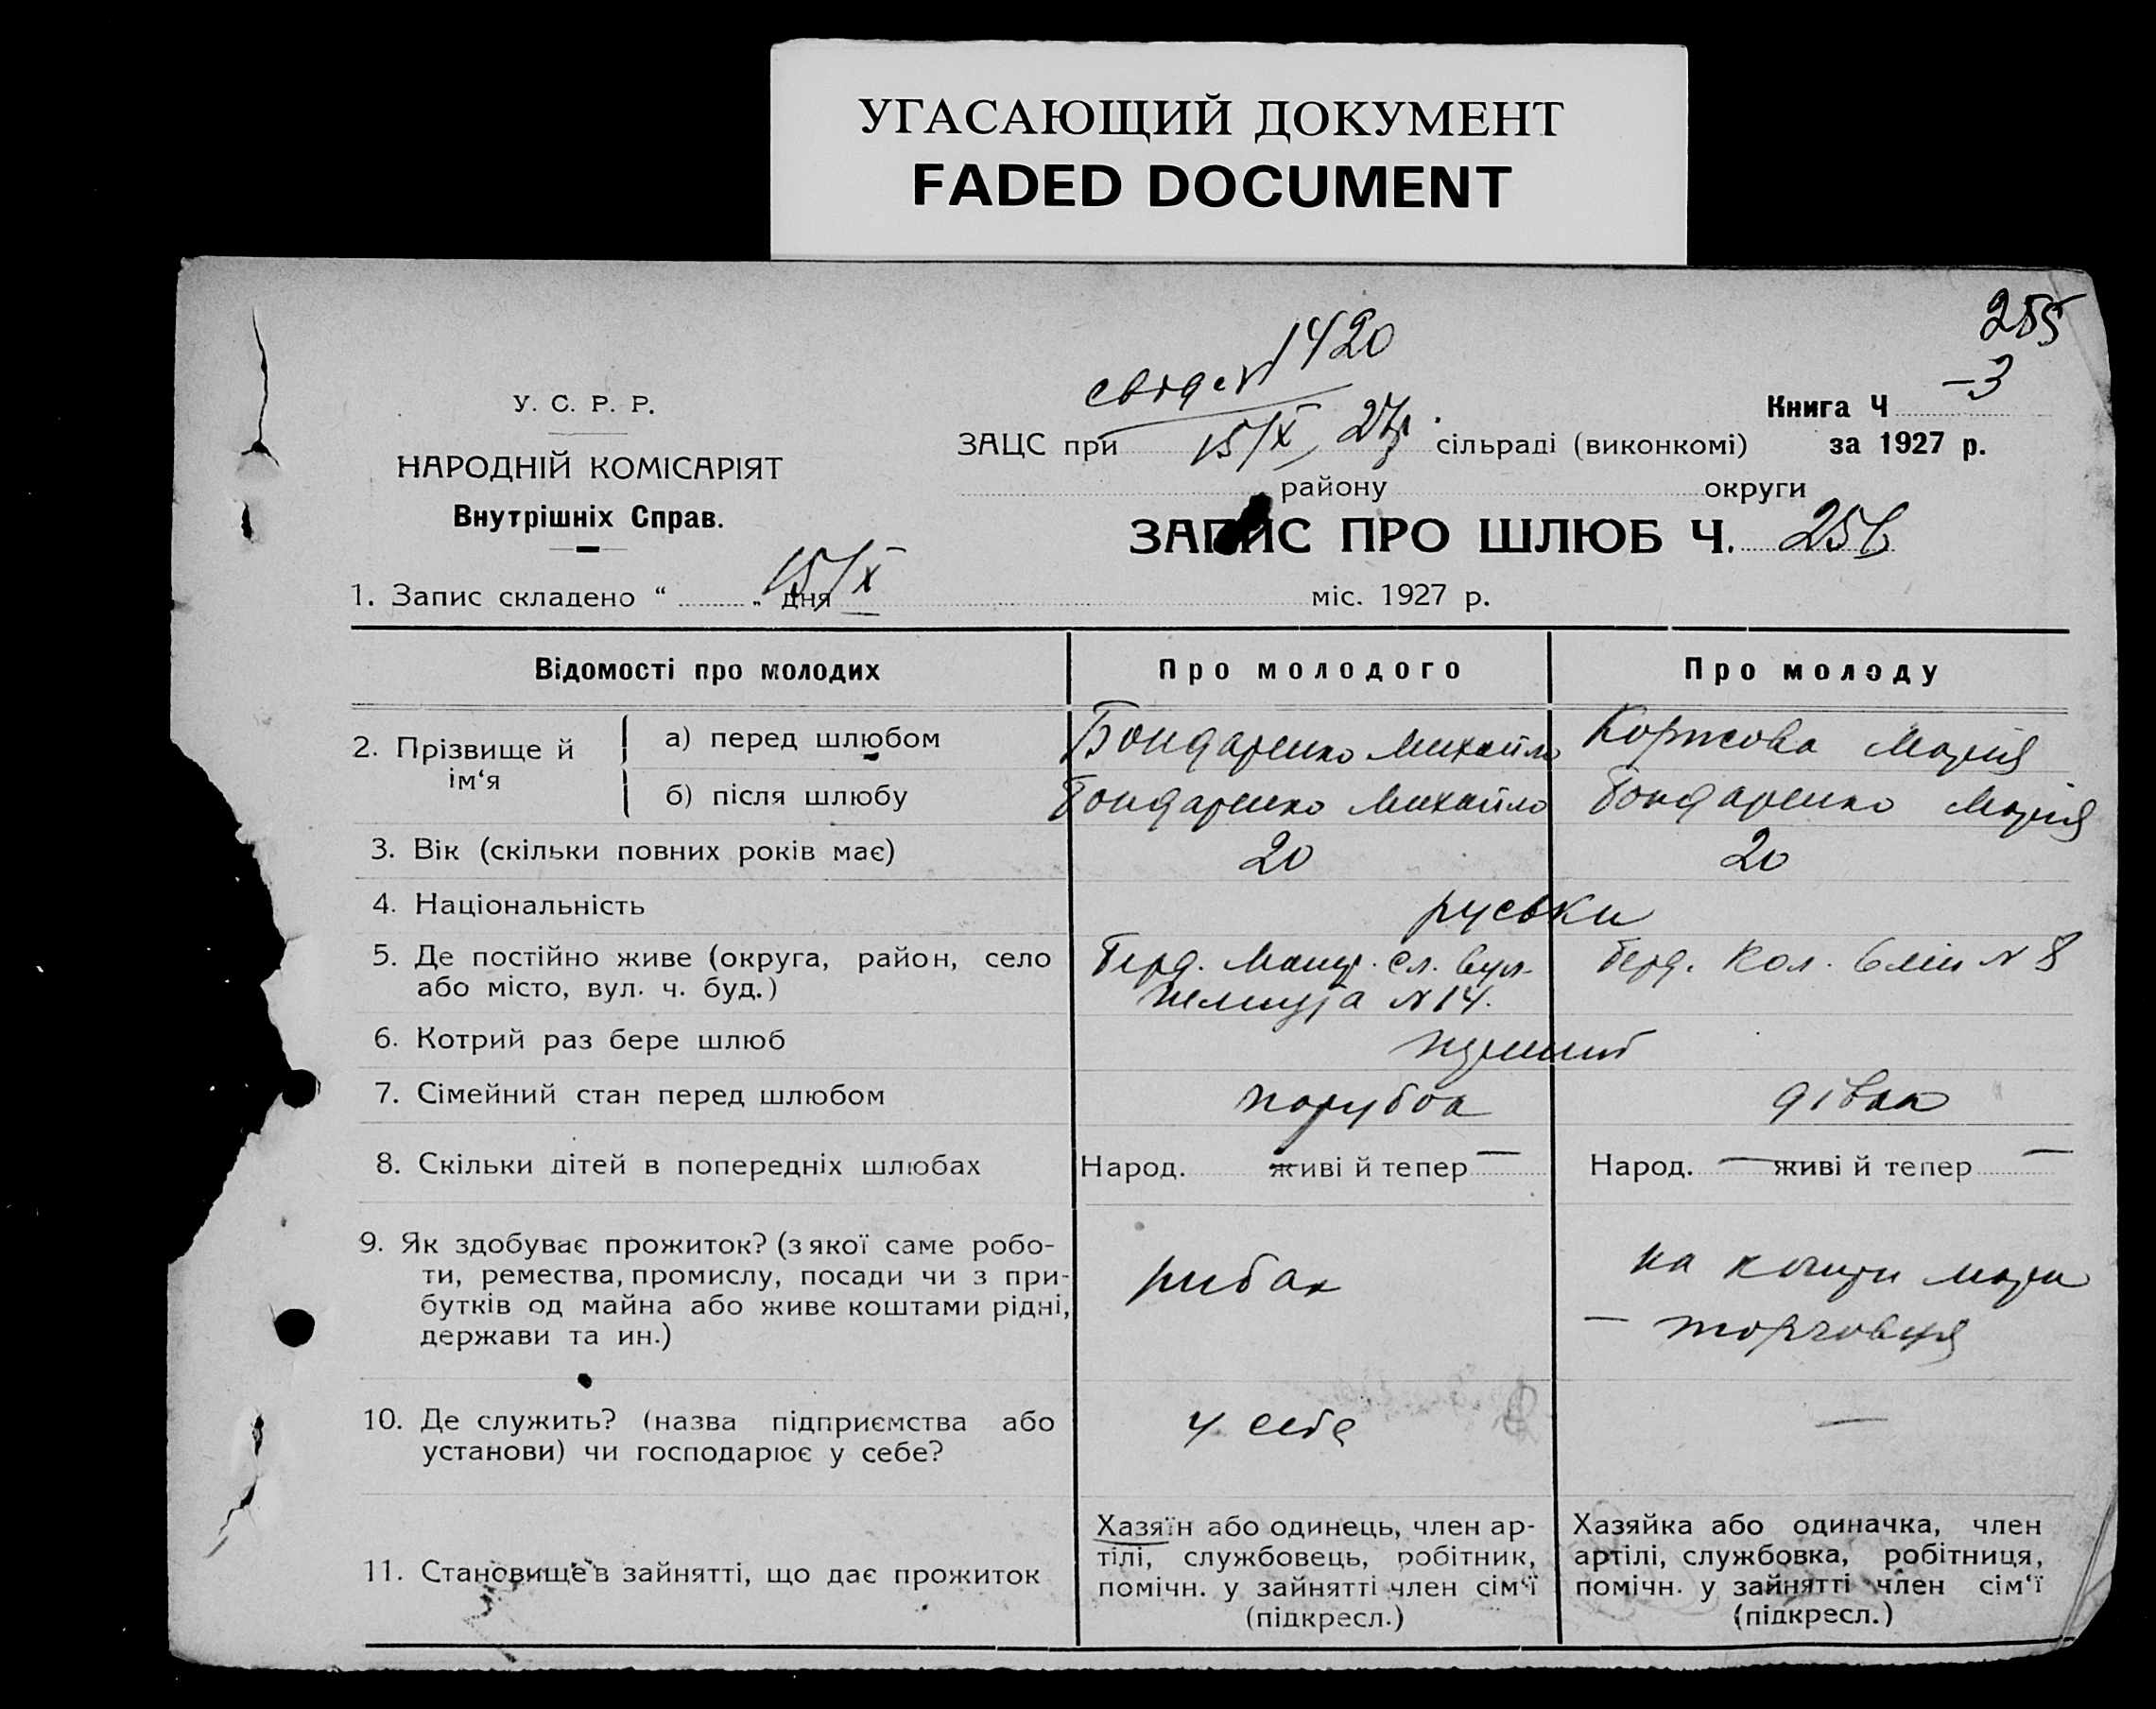 УГАСАЮЩИЙ ДОКУМЕНТ
FADED DOCUMENT
255
1420
-3
У. С. Р. Р.
Книга Ч
ЗАЦС при 15/X 27р. сільраді (виконкомі) за 1927 р.
НАРОДНІЙ КОМІСАРІЯТ
району округи
Внутрішніх Справ.
ЗАПИС ПРО ШЛЮБ Ч. 256
1. Запис складено “ „ дня 15/X міс. 1927 р.
Відомості про молодих Про молодого Про молоду
2. Прізвище й ім‘я
а) перед шлюбом Бондаренко Михайло Коржова Марія
б) після шлюбу Бондаренко Михайло Бондаренко Марія
3. Вік (скільки повних років має) 20 20
4. Національність руськи
5. Де постійно живе (округа, район, село Берд. сл. вул. Берд. Кол. 6 лін N 8
або місто, вул. ч. буд.) N 14.
6. Котрий раз бере шлюб перший
7. Сімейний стан перед шлюбом парубок дівка
8. Скільки дітей в попередніх шлюбах Народ. живі й тепер — Народ. — живі й тепер —
9. Як здобуває прожиток? (з якої саме робо-
ти, ремества, промислу, посади чи з при- рибак на кошти
бутків од майна або живе коштами рідні, — торговця
держави та ин.)
10. Де служить? (назва підприємства або у себе —
установи) чи господарює у себе?
11. Становище в зайнятті, що дає прожиток
Хазяїн або одинець, член ар-
тілі, службовець, робітник,
помічн. у зайнятті член сім‘ї
(підкресл.)
Хазяйка або одиначка, член
артілі, службовка, робітниця,
помічн. у зайнятті член сім‘ї
(підкресл.)